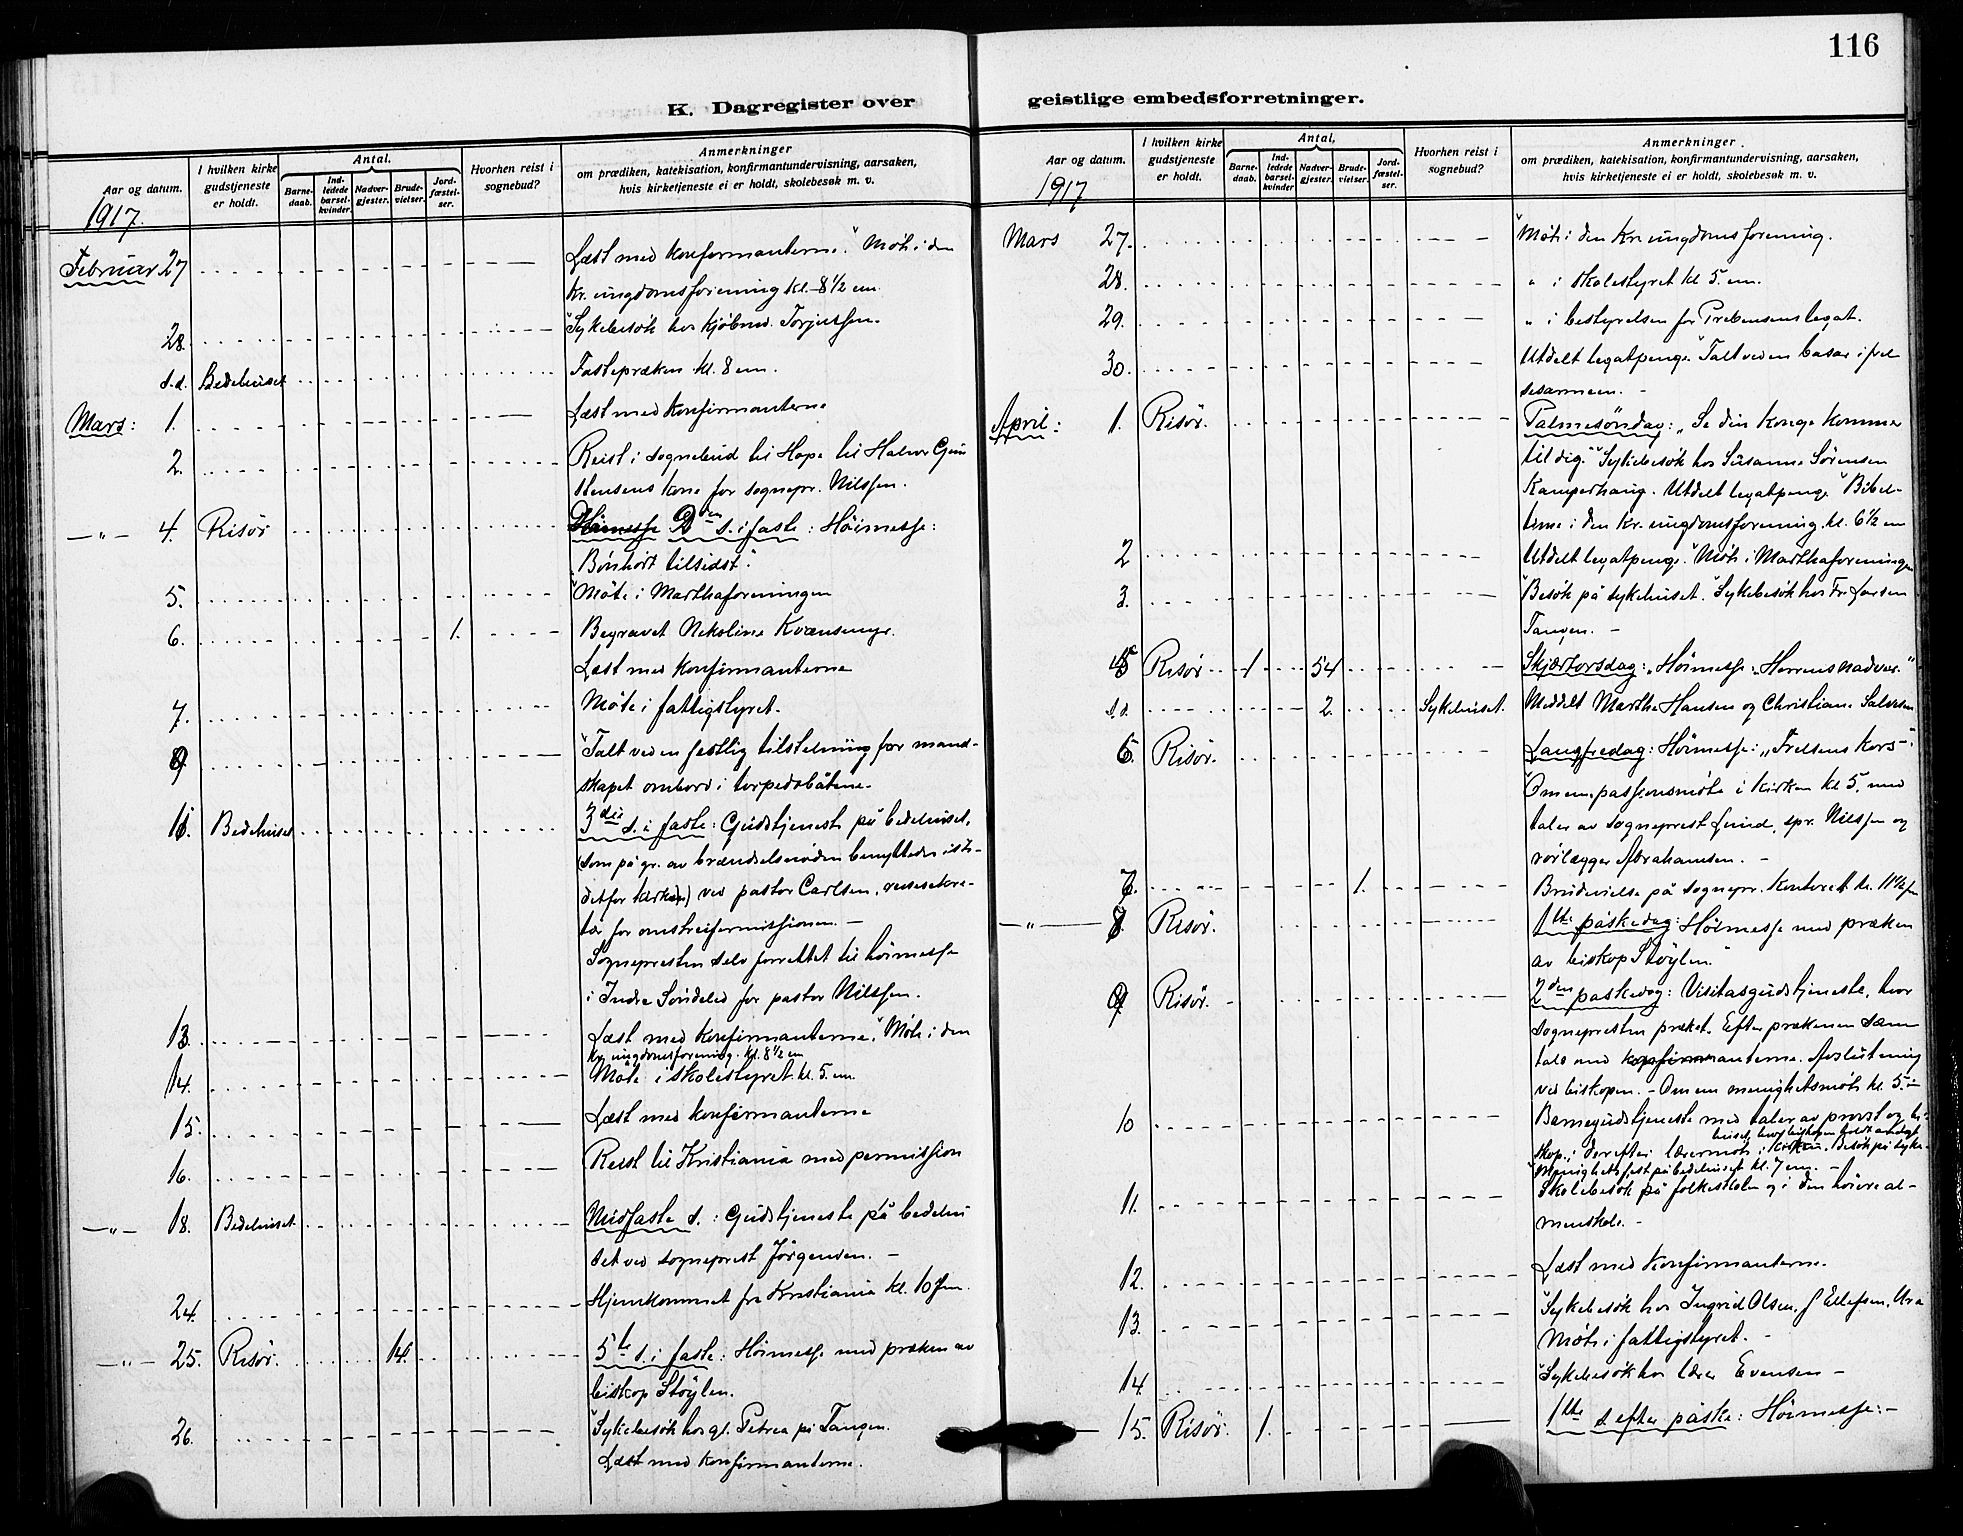 116
K. Dagregister over
geistlige embedsforretninger.
Aar og datum.
1917.
I hvilken kirke gudstjeneste er holdt.
Antal.
Barne-daab.
Ind-ledede barsel-kvinder.
Nadver-gjester.
Brude-vielser.
Jord-fæstel-ser.
Hvorhen reist i sognebud?
Anmerkninger
om prædiken, katekisation, konfirmantundervisning, aarsaken,
hvis kirketjeneste ei er holdt, skolebesøk m. v.
Februar 27 Læst med konfirmanterne. Møte i den
Kr. ungdomsforening kl. 8 1/2 em.
28. Sykebesök hos kjöbmd. Torjussen.
s.d. Bedehuset Fastepræken kl. 8 em.
Mars: 1. Læst med konfirmanterne
2. Reist i sognebud til Hope til Halvor Gun
stensens kone for sognepr. Nilssen.
—"— 4. Risör 2den s. i faste: Höimesse:
"Bönhört tilsidst".
5. Möte i Marthaforeningen
6. 1. Begravet Nikoline Kvænsmyr.
Læst med konfirmanterne
7. Möte i fattigstyret.
9 Talt ved en festlig tilstelning for mand-
skapet ombord i torpedobåtene.
11. Bedehuset 3die s. i faste: Gudstjeneste på bedehuset,
(som på gr. av brændselsnöden benyttedes iste-
detfor kirken) ved pastor Carlsen, reisesekre-
tær for omstreifermissionen. —
Sognepresten selv forrettet til höimesse
i Indre Söndeled for pastor Nilssen.
13. Læst med konfirmanterne. Möte i den
Kr. ungdomsforening. kl. 8 1/2 em
14. Möte i skolestyret kl. 5 em.
15. Læst med konfirmanterne
16. Reist til Kristiania med permission
—"— 18. Bedehuset Midfaste s.: Gudstjeneste på bedehu
set ved sogneprest Jörgensen. —
24. Hjemkommet fra Kristiania kl. 10 fm.
—"— 25. Risör. 14. 5te s. i faste: Höimesse med præken av
biskop Stöylen.
26. Sykebesök hos gl. Petrea på Tangen.
Læst med konfirmanterne.
Aar og datum.
1917
I hvilken kirke gudstjeneste er holdt.
Antal,
Barne-daab.
Ind-ledede barsel-kvinder
Nadver-gjester.
Brude-vielser.
Jord-fæstel-ser.
Hvorhen reist i sognebud?
Anmerkninger.
om prædiken, katekisation, konfirmantundervisning, aarsaken,
hvis kirketjeneste ei er holdt, skolebesøk m. v.
Mars 27. Möte i den Kr. ungdomsforening.
28. " i skolestyret kl 5. em.
29. " i bestyrelsen for Prebensens legat.
30. Utdelt legatpenge. Talt ved en basar i frel
sesarmeen. —
April: 1. Risör. Palmesöndag: "Se din konge kommer
til dig." Sykebesök hos Susanne Sörensen
Kamperhaug. Utdelt legatpenge. Bibel-
time i den Kr. ungdomsforening. kl. 6 1/2 em
2 Utdelt legatpenge. Möte i Marthaforeningen
3. Besök på sykehuset. Sykebesök hos Fr. Larsen
Tangen. —
5 Risör 1 54 Skjærtorsdag: Höimesse: "Herrens nadver."
s.d. 2. Sykehuset. Meddelt Marthe Hansen og Christiane Salvesen
6. Risör. Langfredag: Höimesse: "Frelsens kors".
Om em. passionsmöte i kirken kl 5. med
taler av sogneprest Lund, spr. Nilssen og
rörlægger Abrahamsen. —
7. 1. Brudevielse på sognepr. kontoret kl. 11 1/2 fm
—"— 8. Risör. 1ste påskedag: Höimesse med præken
av biskop Stöylen."
9 Risör. 2den påskedag: Visitasgudstjeneste, hvor
sognepresten præket. Efter prækenen sam
tale med konfirmanterne. Avslutning
ved biskopen. — Om em menighetsmöte kl. 5. —
10 Barnegudstjeneste med taler av provst og bi-
skop; derefter lærermöte i kirken. Besök på syke-
huset, hvor biskopen holdt andagt
Menighetsfest på bedehuset kl. 7 em. —
11. Skolebesök på folkeskolen og i den höiere al-
menskole. —
12. Læst med konfirmanterne.
13. Sykebesök hos Ingrid Olsen, J Ellefsen, Ura
Möte i fattigstyret. —
14 Sykebesök hos lærer Evensen —
15. Risör. 1. 1ste s. efter påske: Höimesse: —